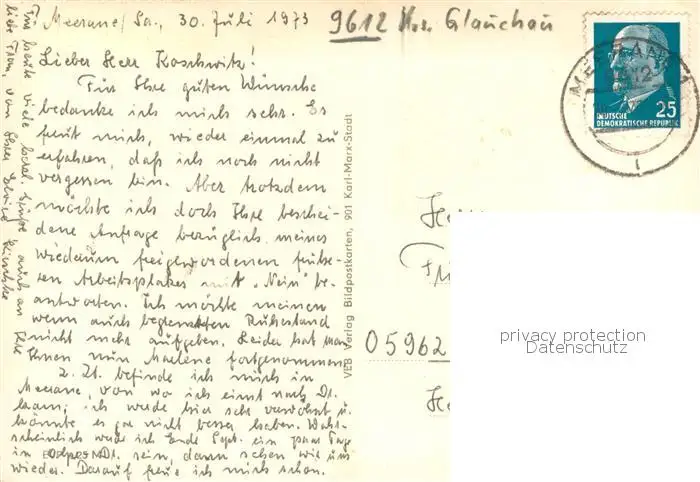 Meerane/Sa., 30. Juli 1973
9612 Krs. Glauchau
Lieber Herr Koschwitz!
Für Ihre guten Wünsche
bedanke ich mich sehr. Es
freut mich, wieder einmal zu
erfahren, daß ich noch nicht
vergessen bin. Aber trotzdem
möchte ich doch Ihre beschei-
dene Anfrage bezüglich meines
wiederum freigewordenen frühe-
ren Arbeitsplatzes mit „Nein" be-
antworten. Ich möchte meinen
wenn auch begrenzten Ruhestand
nicht mehr aufgeben. Leider hat man
Ihnen nun Marlene fortgenommen
z. Zt. befinde ich mich in
Meerane, von wo ich einst nach
kam; ich werde hier sehr verwöhnt u.
könnte es gar nicht besser haben. Wahr-
scheinlich werde ich Ende Sept. ein paar Tage
in sein, dann sehen wir uns
wieder. Darauf freue ich mich schon.
Für heute viele herzl. Grüße auch an Ihre
liebe Frau, von Ihrer
VEB Verlag Bildpostkarten, 901 Karl-Marx-Stadt
MEERANE 1
25
DEUTSCHE
DEMOKRATISCHE REPUBLIK
05962
privacy protection
Datenschutz